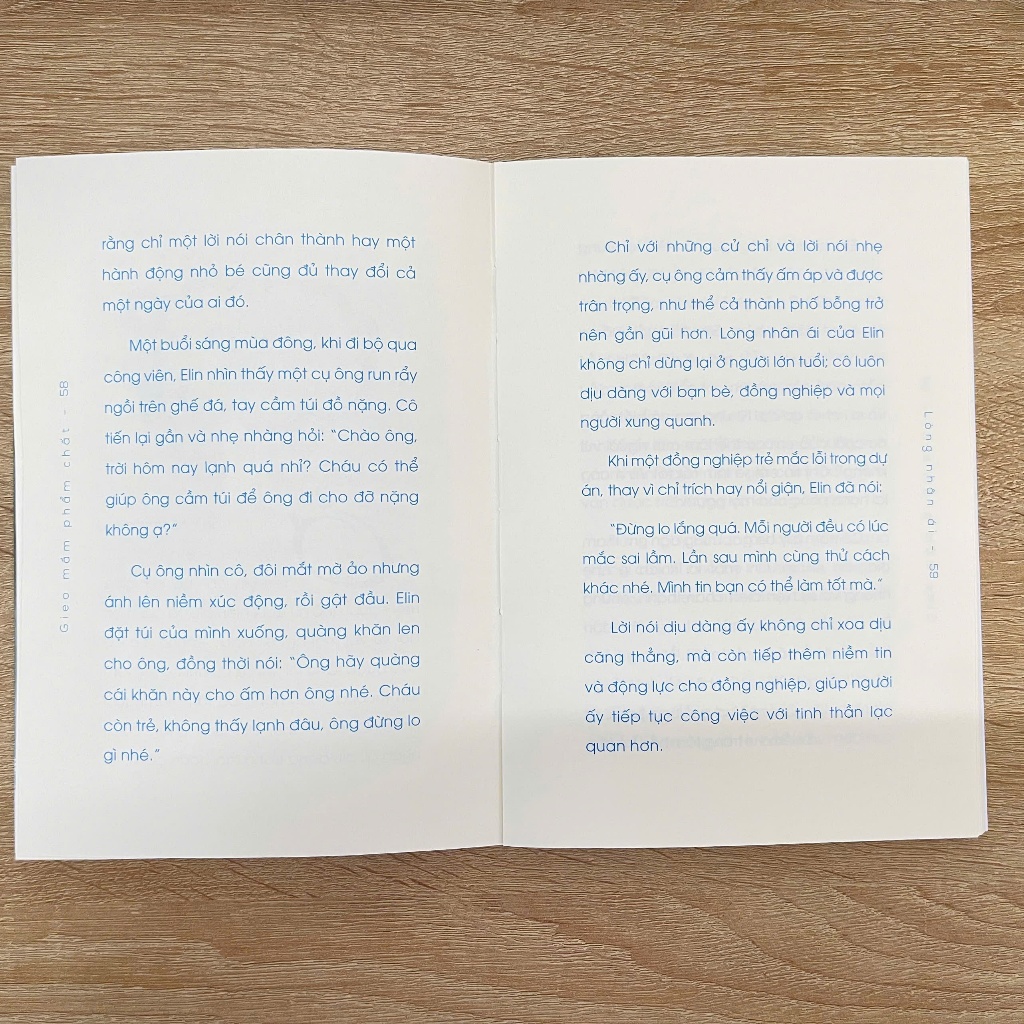 rằng chỉ một lời nói chân thành hay một
hành động nhỏ bé cũng đủ thay đổi cả
một ngày của ai đó.
Một buổi sáng mùa đông, khi đi bộ qua
công viên, Elin nhìn thấy một cụ ông run rẩy
ngồi trên ghế đá, tay cầm túi đồ nặng. Cô
tiến lại gần và nhẹ nhàng hỏi: “Chào ông,
trời hôm nay lạnh quá nhỉ? Cháu có thể
giúp ông cầm túi để ông đi cho đỡ nặng
không ạ?”
Cụ ông nhìn cô, đôi mắt mờ ảo nhưng
ánh lên niềm xúc động, rồi gật đầu. Elin
đặt túi của mình xuống, quàng khăn len
cho ông, đồng thời nói: “Ông hãy quàng
cái khăn này cho ấm hơn ông nhé. Cháu
còn trẻ, không thấy lạnh đâu, ông đừng lo
gì nhé.”
Gieo mầm phẩm chất - 58
Chỉ với những cử chỉ và lời nói nhẹ
nhàng ấy, cụ ông cảm thấy ấm áp và được
trân trọng, như thể cả thành phố bỗng trở
nên gần gũi hơn. Lòng nhân ái của Elin
không chỉ dừng lại ở người lớn tuổi; cô luôn
dịu dàng với bạn bè, đồng nghiệp và mọi
người xung quanh.
Khi một đồng nghiệp trẻ mắc lỗi trong dự
án, thay vì chỉ trích hay nổi giận, Elin đã nói:
“Đừng lo lắng quá. Mỗi người đều có lúc
mắc sai lầm. Lần sau mình cùng thử cách
khác nhé. Mình tin bạn có thể làm tốt mà.”
Lời nói dịu dàng ấy không chỉ xoa dịu
căng thẳng, mà còn tiếp thêm niềm tin
và động lực cho đồng nghiệp, giúp người
ấy tiếp tục công việc với tinh thần lạc
quan hơn.
Lòng nhân ái - 59